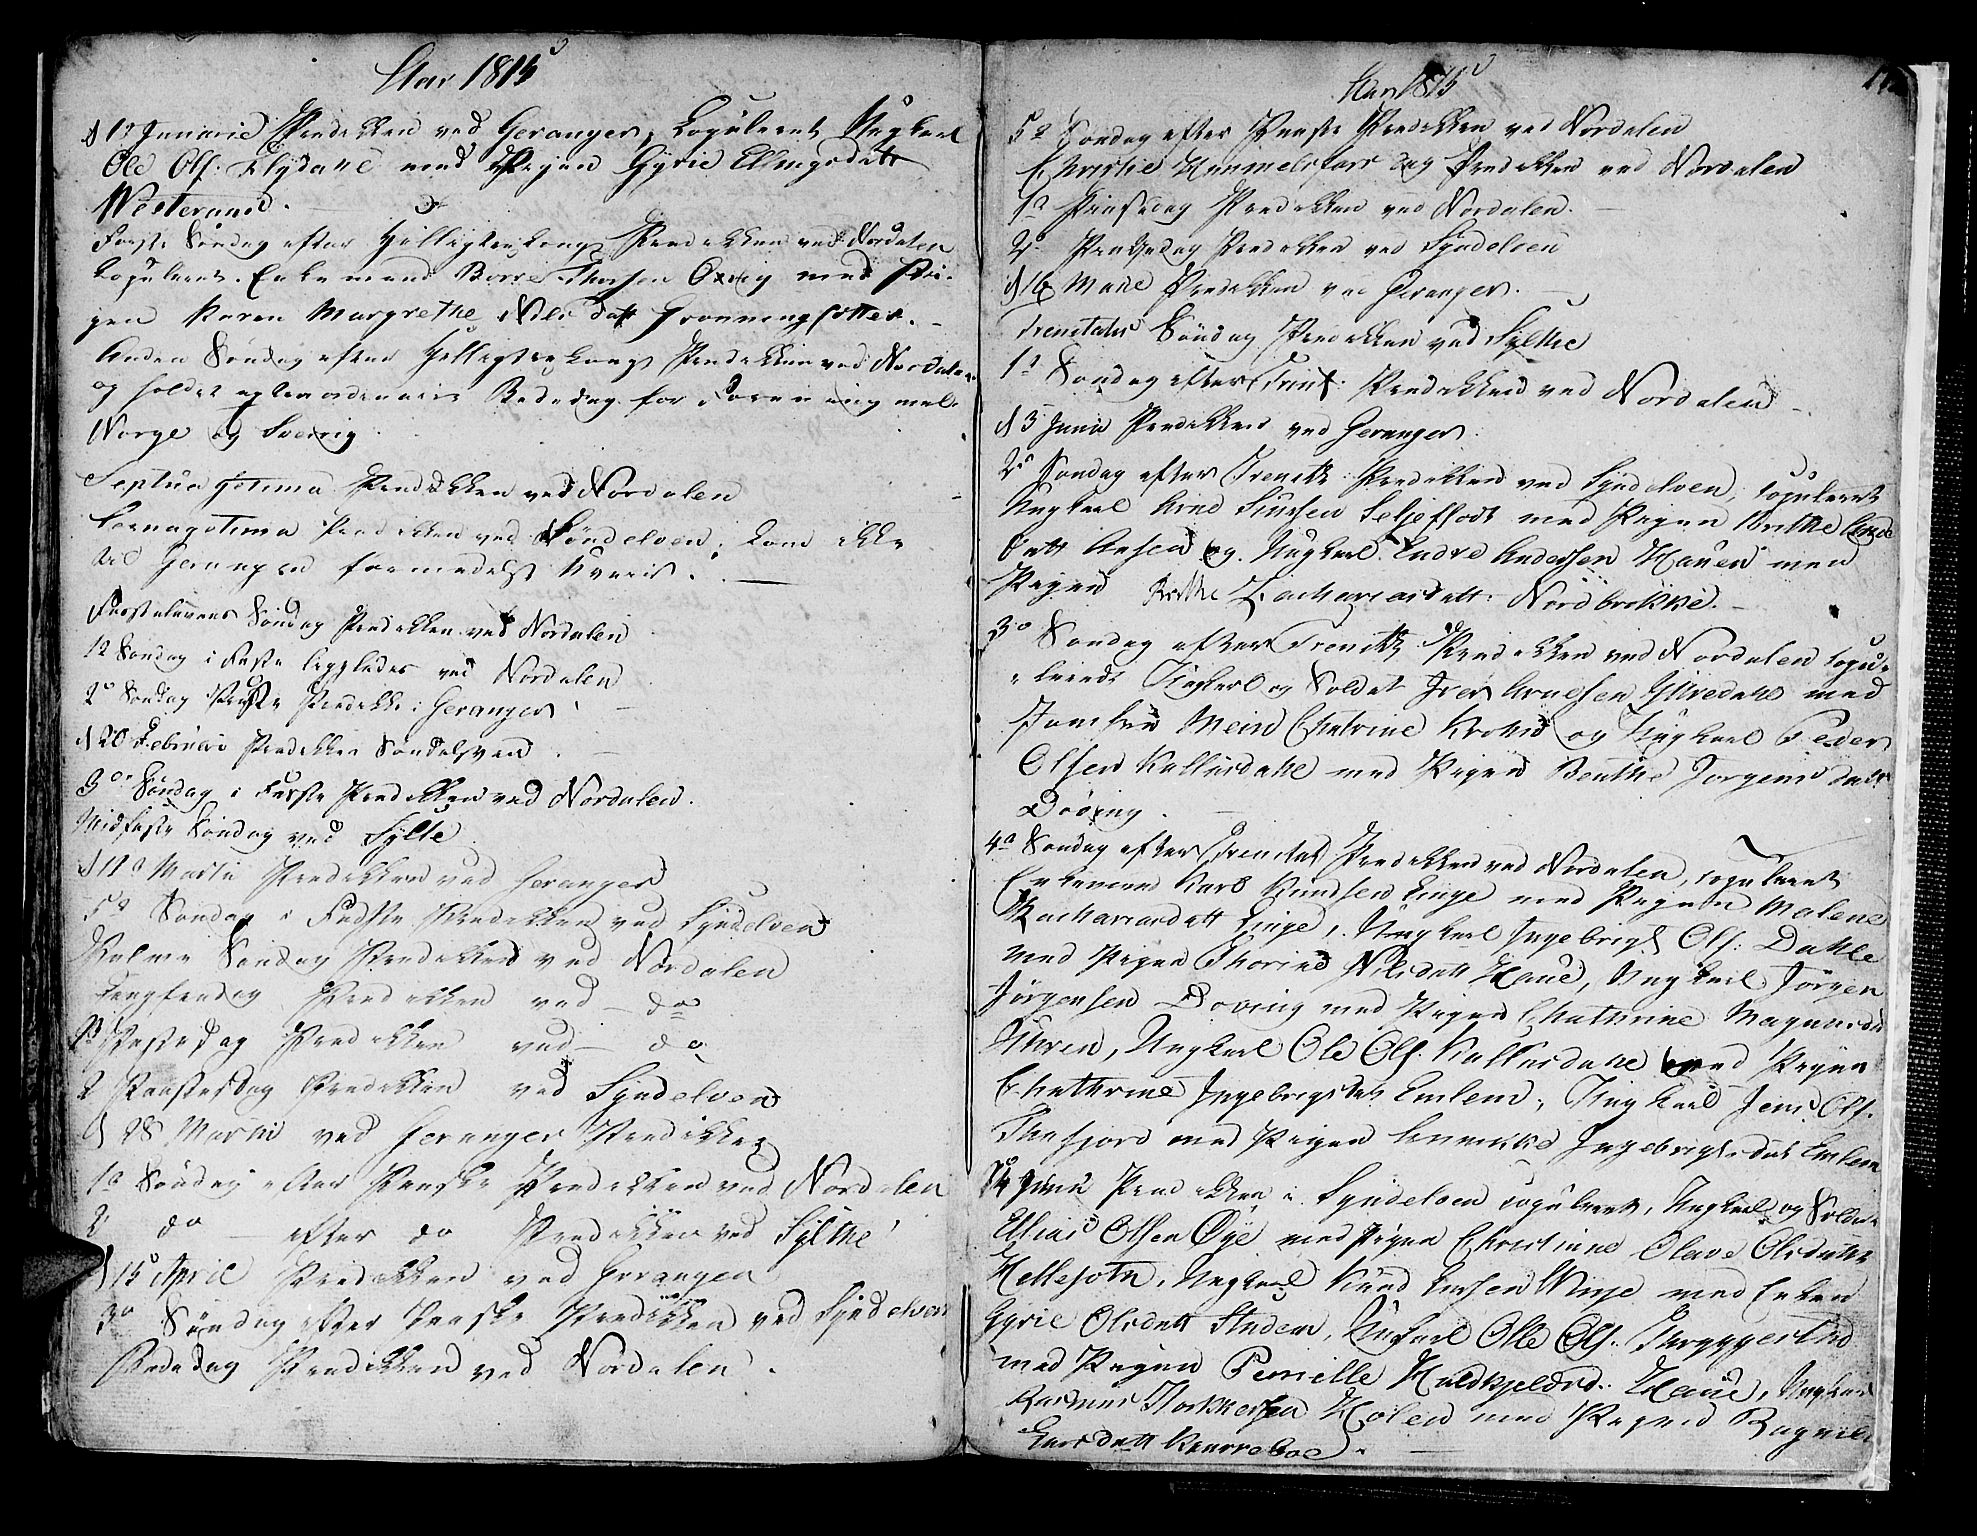 Aar 1815
d 1 Januarie Prædikken ved Geranger, Copuleret Ungkarl
Ole Ols: Flÿdahl med Pigen Gÿrie Ellingsdatt
Westeraas.
Første Søndag efter Helligtrekong Prædikken ved Nordalen
Copuleret Enkemand Børre Thorsen Overg med Pi-
gen Karen Margrethe Nilsdatt Grønningsetter.
Anden Søndag efter Helligtrekongs Prædikken ved Nordalen
og holdet extraordenair Bededag for Forening mel.
Norge og Sverrig
Septuagesima Prædikken ved Nordalen
Sexagesima Prædikken ved Söndelven, kom ikke
til Geranger formedelst Uveir.
Fastelavens Søndag Prædikken ved Nordalen
1ª Søndag i Faste ved Nordalen
2ª Søndag Faste Prædikke: Geranger
d 20 Februari Prædikken Sündelsven
3die Søndag i Faste Prædikken ved Nordalen.
Midfaste Søndag ved Sÿlte
d 11ª Martii Prædikken ved Geranger
5ª Søndag i Faste Prædikken ved Sÿndelven
Palme Søndag Prædikken ved Nordalen
Langfredag Prædikken ved - do
1 Paaskedag Prædikken ved - do
2 Paaskedag Prædikken ved Sÿndelven
d 28 Martii ved Geranger Prædikken
1ª Søndag efter Paaske Prædikken ved Nordalen
2 do - efter do Prædikken ved Sÿlthe
d 15 April Prædikken ved Gerangen
3ª Søndag efter Paaske Prædikken ved Sÿndelven
Bededag Prædikken ved Nordalen.
Aar 1815
5ª Søndag efter Paaske Prædikken ved Nordalen
Christie Himmelsfart dag Prædikken ved Nordalen
1ª Pintsedag Prædikken ved Nordalen.
2 Pintsedag Prædikken ved Sÿndelven
d 16 Maÿe Prædikken ved Geranger.
Trenitatis Søndag Prædikken ved Sÿlthe
1ª Søndag efter Trinit: Prædikken ved Nordalen
d 3 Junii Prædikken ved Geranger.
2ª Søndag efter Trenitt: Prædikken ved Sÿndelven, Copuleret
Ungkarl Arne Seljeflodt med Pigen Brithe
datt og Ungkarl Endre Andersen Hauen med
Pigen Brithe Zachariasdatt Nordbrekke.
3ª Søndag efter Trenitt: Prædikken ved Nordalen Copu-
lerede Ungkarl og Soldat Iver Arnesen Ÿttredahl med
Jomfru Chatrine Krohn og Ungkarl Peder
Olsen Kallusdahl med Pigen Benthe Jorgens datt
Døving.
4ª Søndag efter Trenitat: Prædikken ved Nordalen, Copuleret
Enkemand Knudsen Linge med Pigen Malene
Zachariasdatt Linge, Ungkarl Ingebrigt Ols: Dahle
med Pigen Thorine Nilsdatt Haue, Ungkarl Jörgen
Jörgensen Döving med Pigen Chathrine Magnusdt
Uhren, Ungkarl Ole Ols. Kallusdahl med Pigen
Chathrine Ingebrigtsdatt Emlem, Ungkarl Jens Ols.
Thafjord med Pigen Annikke Ingebrigtsdat Emlem
14 Junii Prædikken i Sÿndelven Copuleret, Ungkarl og Soldat
Elias Olsen Øÿe med Pigen Christianne Olave Olsdatt
Hellesÿth, Ungkarl Knud Larsen Winje med Enken
Gÿrie Olsdatt Stadem, Ungkarl Olle Ols.
med Pigen Pernille Haue, Ungkarl
Rasmus Torkkersen Holen med Pigen Ragnild
Larsdatt